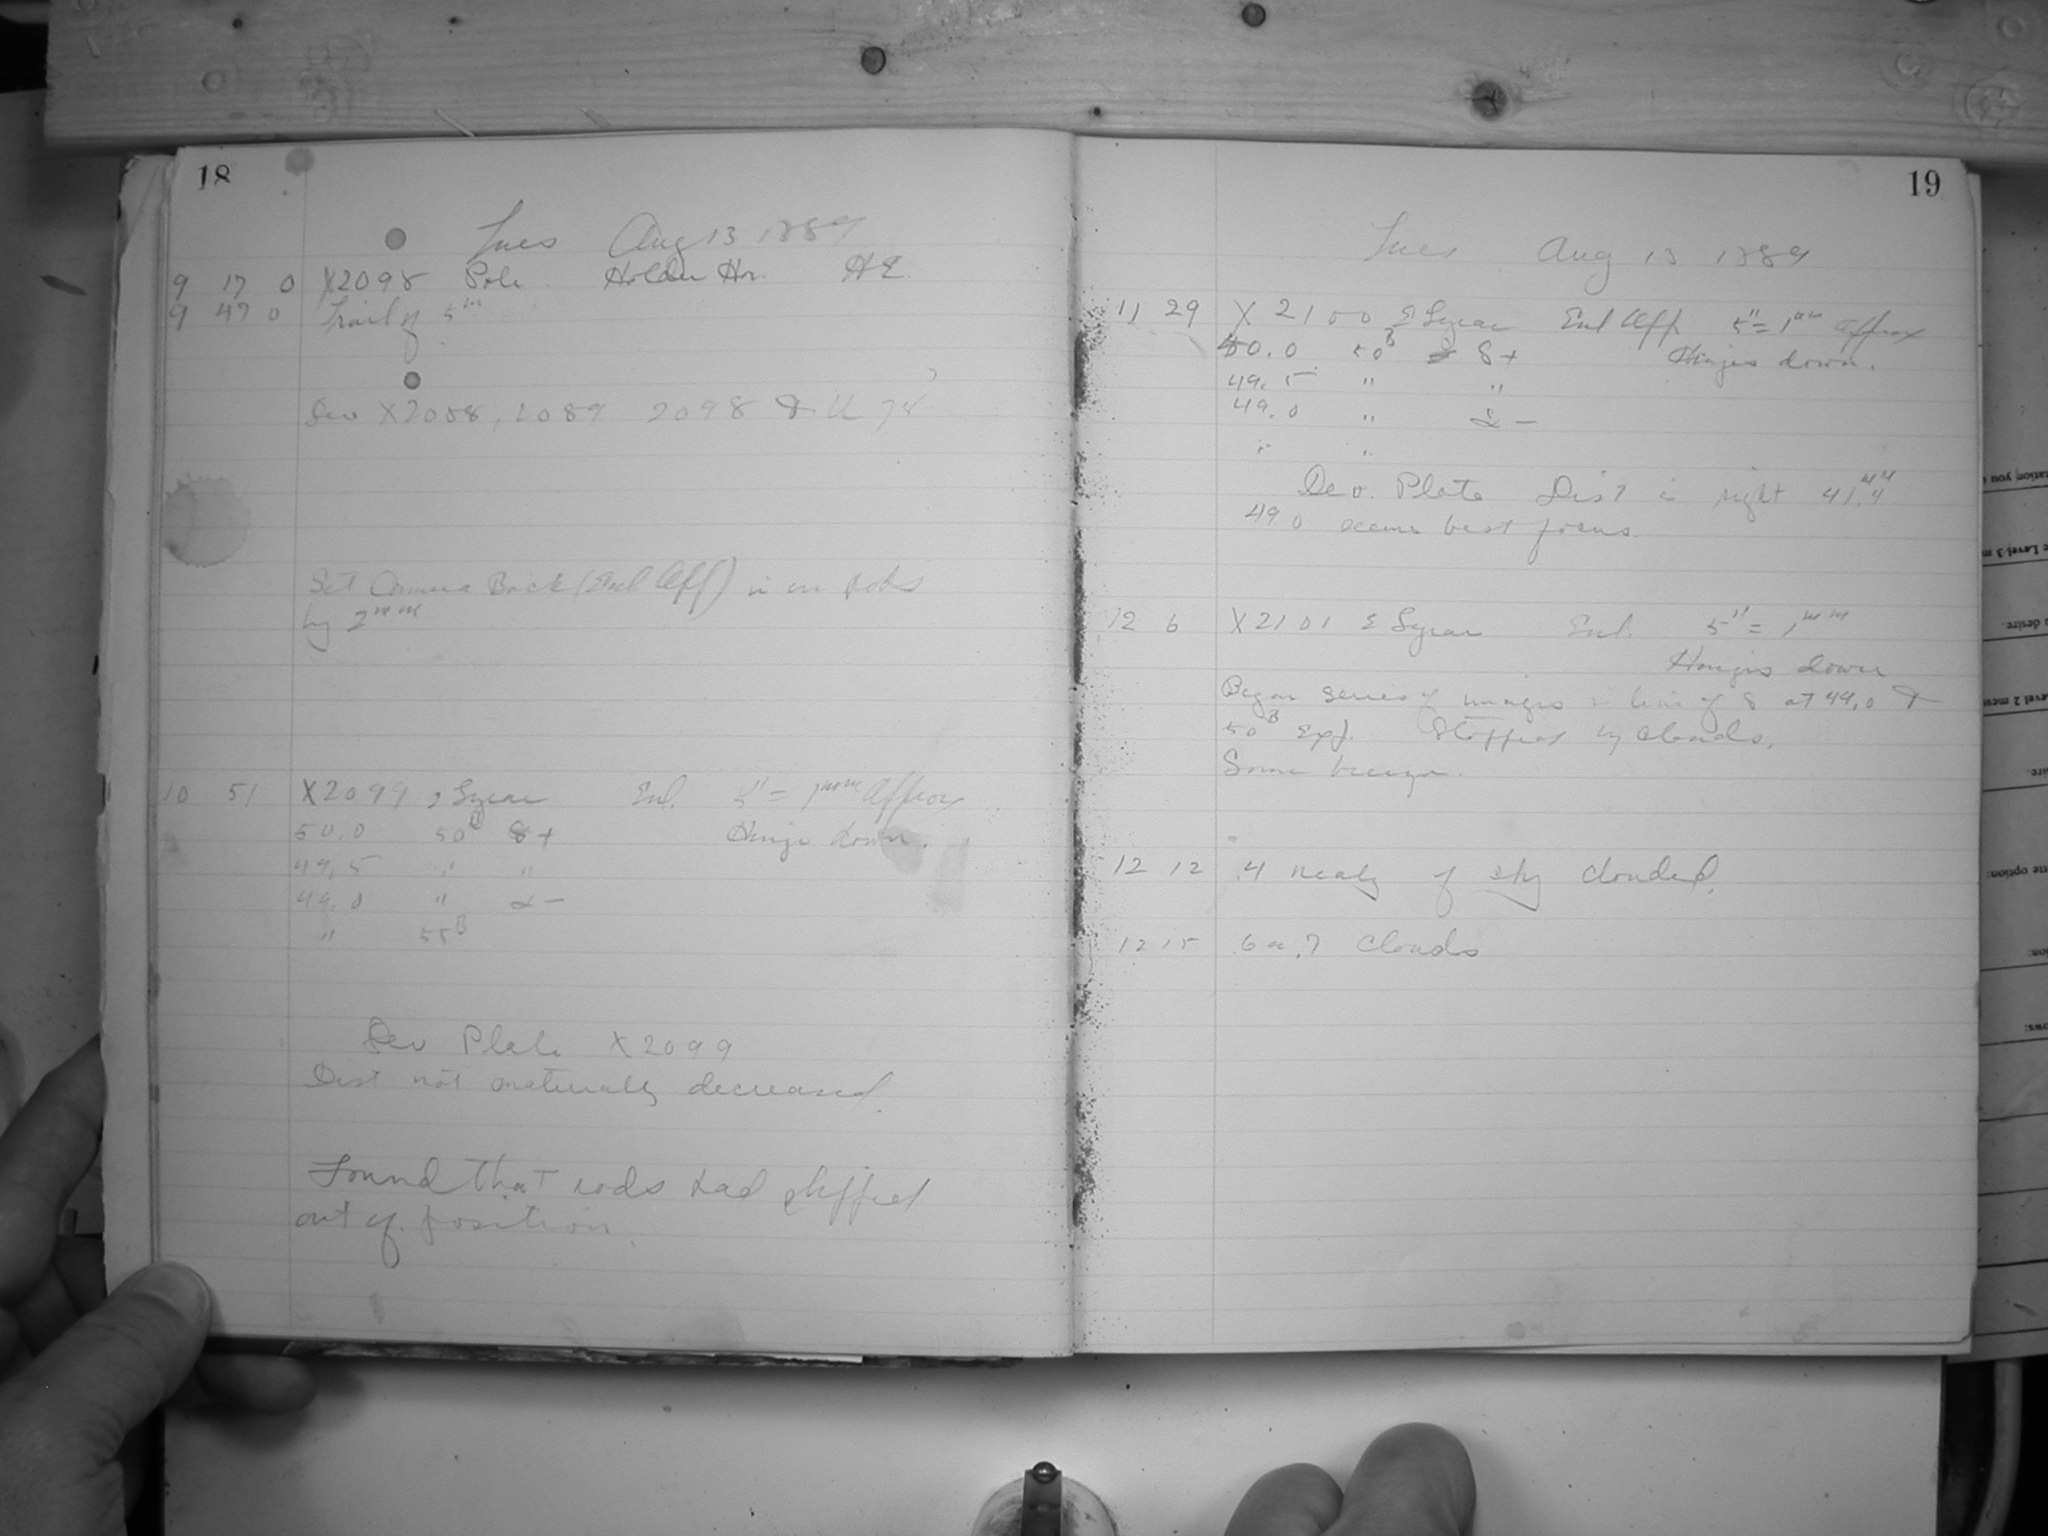 18
Tues Aug 13 1889
9 17 0 X2098 Pole Holder Hor. HE
9 47 0 Trail of 5m
Dev X2088, 2089 2098 & U 78
Set Camera Back (Enl App) in on rods
by 2mm
10 51 X2099 ε Lyrae Enl. 5" = 1mm approx
50.0 50B 8+ Hinge down.
49.5 " "
49.0 " 2-
" 55B
Dev Plate X2099
Dist not materially decreased.
Found that rods had slipped
out of position
19
Tues Aug 13 1889
11 29 X2100 ε Lyrae Enl App. 5" = 1mm approx
50.0 50B 8+ Hinges down.
49.5 " "
49.0 " 2-
" "
Dev. Plate Dist is right 41.4mm
49.0 seems best focus.
12 6 X2101 ε Lyrae Enl. 5" = 1mm
Hinges down
Began series of images in line of 8 at 49.0 &
50B Exp. Stopped by clouds.
Some breeze.
12 12 .4 nearly of sky clouded.
12 15 .6 or .7 clouds